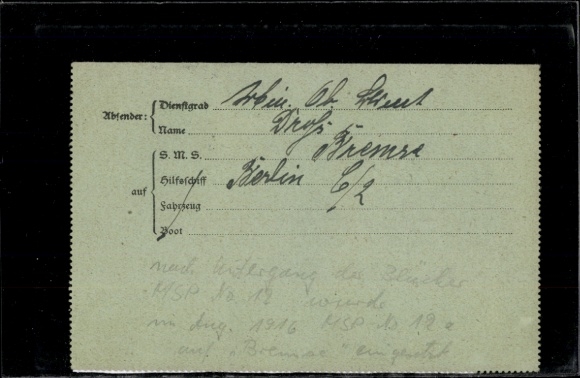 Absender:
Dienstgrad Masch. Ob. Assist
Name Droß
S. M. S. Bremse
auf
Hilfsschiff Berlin C/2
Fahrzeug
Boot
nach Untergang der "Blücher"
MSP No 12 wurde
im Aug. 1916 MSP No 12a
auf "Bremse" eingesetzt